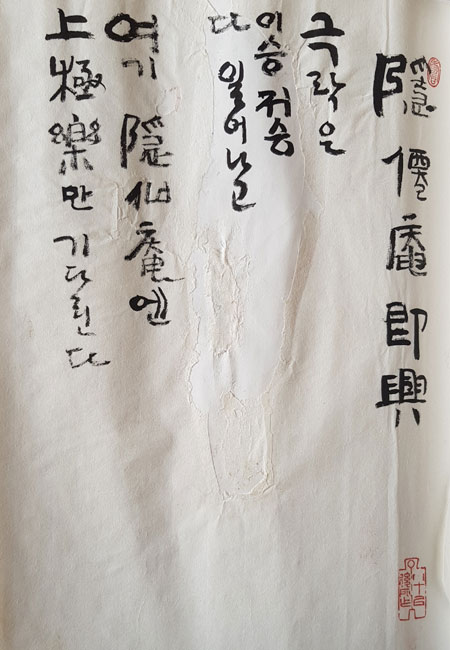 隱僊庵即興
극락은
이승 저승
다
여기 隱仙庵엔
上極樂만 기다린다